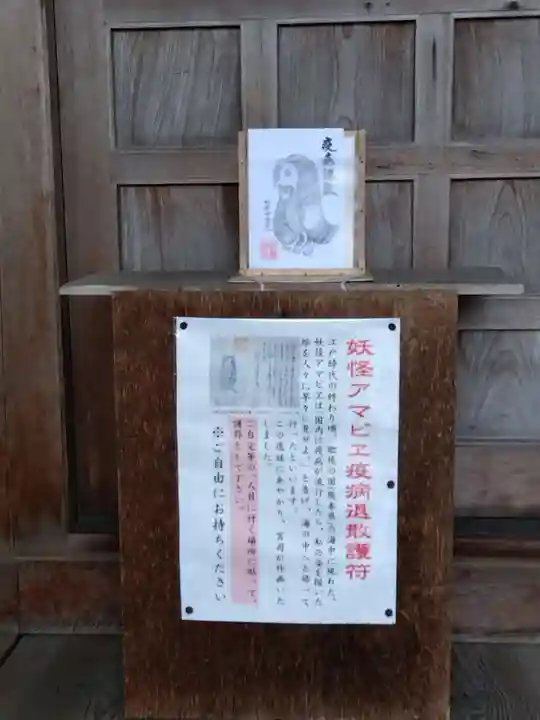 疫病退散
妖怪アマビヱ疫病退散護符
江戸時代の終わり頃、肥後の国(熊本県)の海中に現れた、
妖怪アマビヱは「国内に疫病が流行したら、私の姿を描いた
絵を人々に早々に見せよ。」と告げ、海の中へと帰って
行ったといいます。
この逸話にあやかり、宮司が作画いた
しました。
ご自宅等の、人目に付く場所に貼って、
護符として下さい。
※ご自由にお持ちください